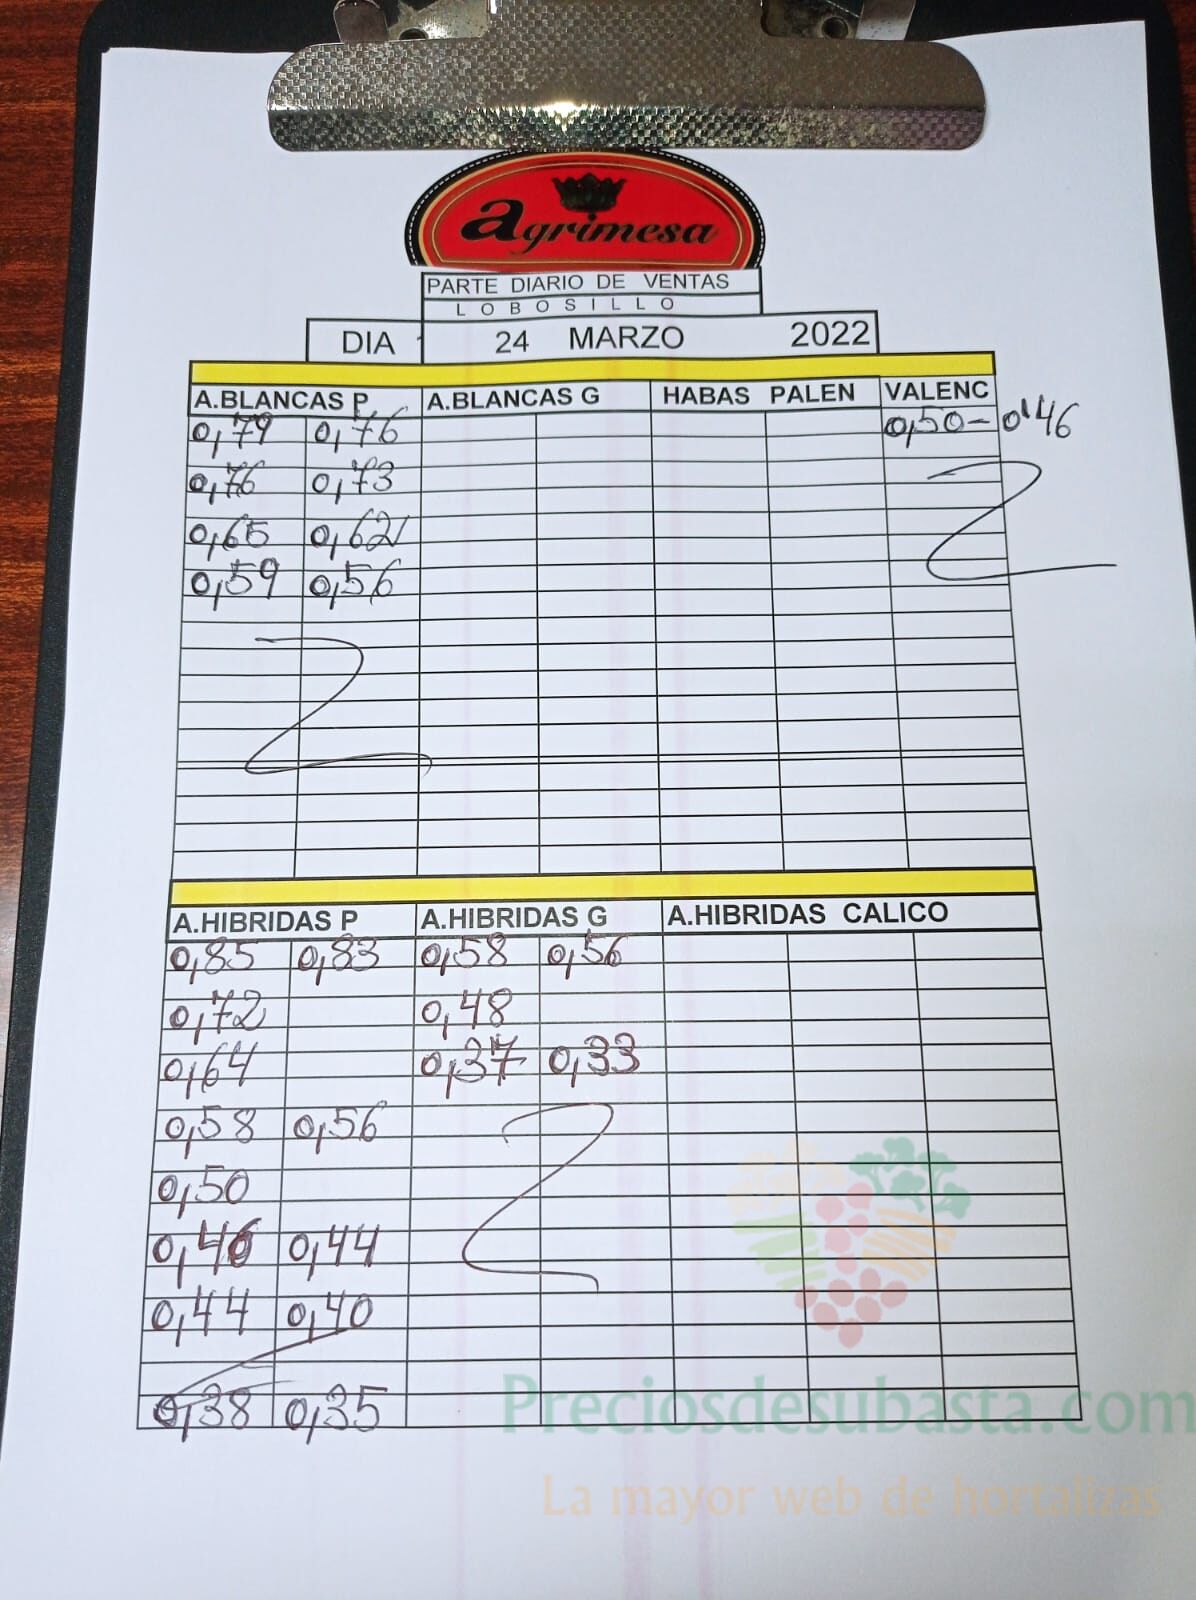 agrimesa
PARTE DIARIO DE VENTAS
LOBOSILLO
DIA 24 MARZO 2022
A.BLANCAS P A.BLANCAS G HABAS PALEN VALENC
0,79 0,76 0,50-0'46
0,76 0,73
0,65 0,62
0,59 0,56
A.HIBRIDAS P A.HIBRIDAS G A.HIBRIDAS CALICO
0,85 0,83 0,58 0,56
0,72 0,48
0,64 0,37 0,33
0,58 0,56
0,50
0,46 0,44
0,44 0,40
0,38 0,35
Preciosdesubasta.com
La mayor web de hortalizas